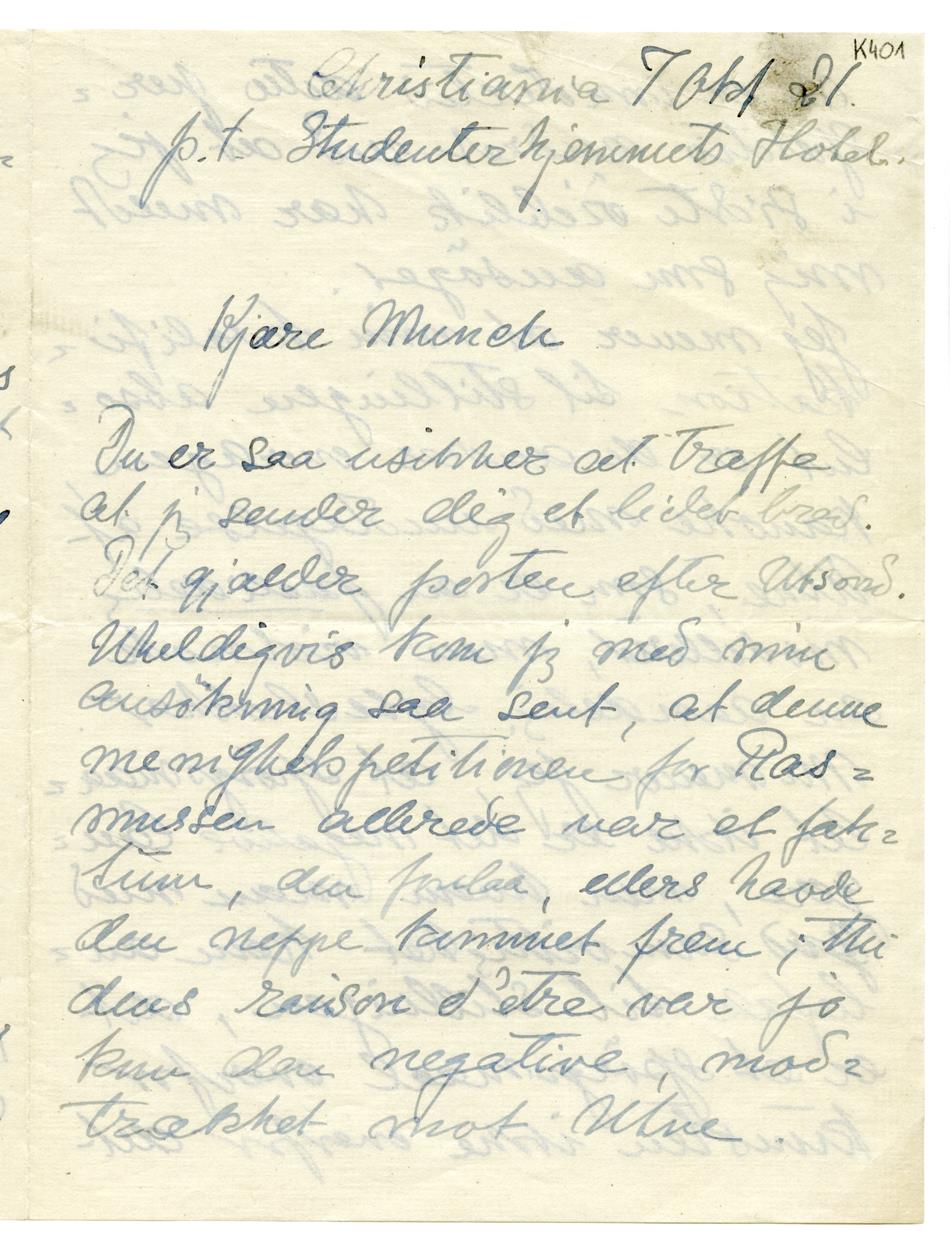 K401
Christiania 7 Okt 21.
p.t. Studenterhjemmets Hotel.
Kjære Munch
Du er saa usikker at træffe
at jeg sender dig et lidet brev.
Det gjælder posten efter
Uheldigvis kom jeg med min
ansökning saa sent, at denne
menighetspetitionen for Ras=
mussen allerede var et fak=
tum, den forelaa, ellers havde
den neppe kommet frem; thi
dens raison d'être var jo
kun den negative, mod=
trækket mot Utne.